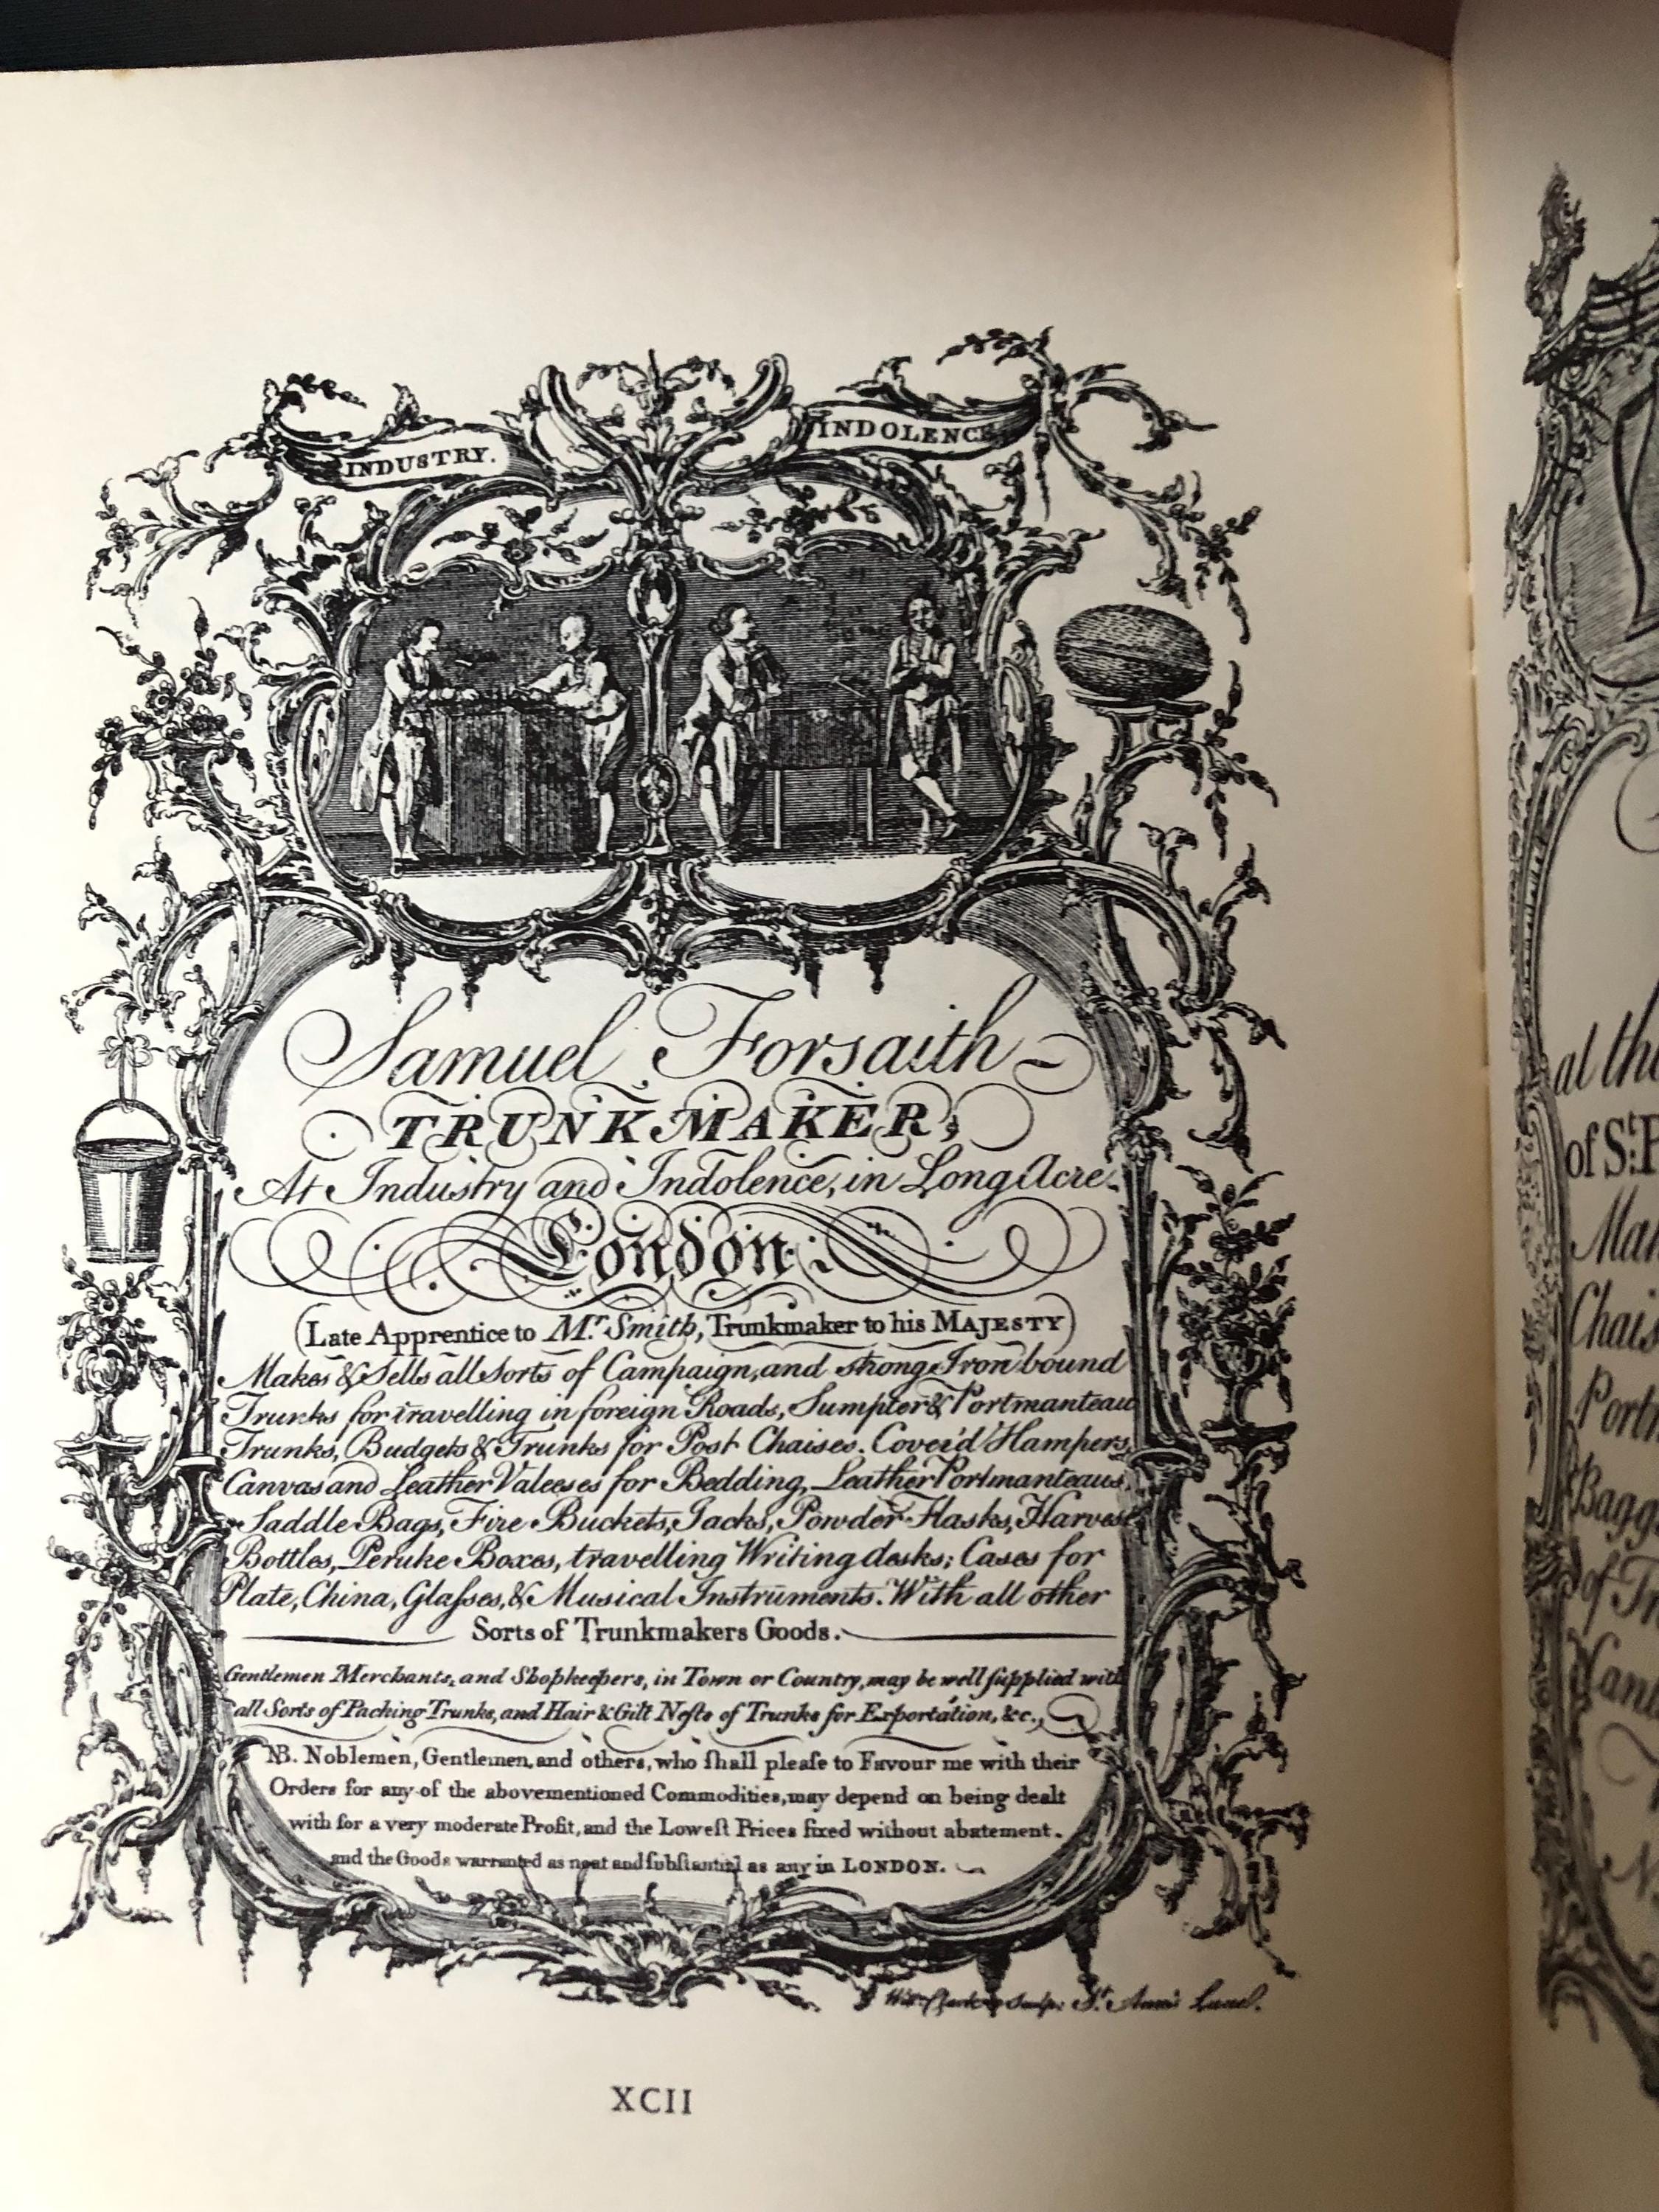 INDUSTRY.
INDOLENCE
Samuel Forsaith
TRUNKMAKER,
At Industry and Indolence, in Long Acre.
London.
(Late Apprentice to Mr. Smith, Trunkmaker to his MAJESTY)
Makes & Sells all Sorts of Campaign, and strong Iron bound
Trunks for travelling in foreign Roads, Sumpter & Portmanteau
Trunks, Budgets & Trunks for Post Chaises. Cover'd Hampers,
Canvas and Leather Valeeses for Bedding, Leather Portmanteaus,
Saddle Bags, Fire Buckets, Jacks, Powder Flasks, Harvest
Bottles, Peruke Boxes, travelling Writing desks; Cases for
Plate, China, Glaſses, & Musical Instruments. With all other
Sorts of Trunkmakers Goods.
Gentlemen Merchants, and Shopkeepers, in Town or Country, may be well ſupplied with
all Sorts of Packing Trunks, and Hair & Gilt Neſts of Trunks for Exportation, &c.,
NB. Noblemen, Gentlemen, and others, who ſhall pleaſe to Favour me with their
Orders for any of the abovementioned Commodities, may depend on being dealt
with for a very moderate Profit, and the Loweſt Prices fixed without abatement.
and the Goods warranted as neat and ſubſtantial as any in LONDON.
Sculp. St. Ann's Lane.
XCII
al the
of St. P
Chais
Bagg
of Tr